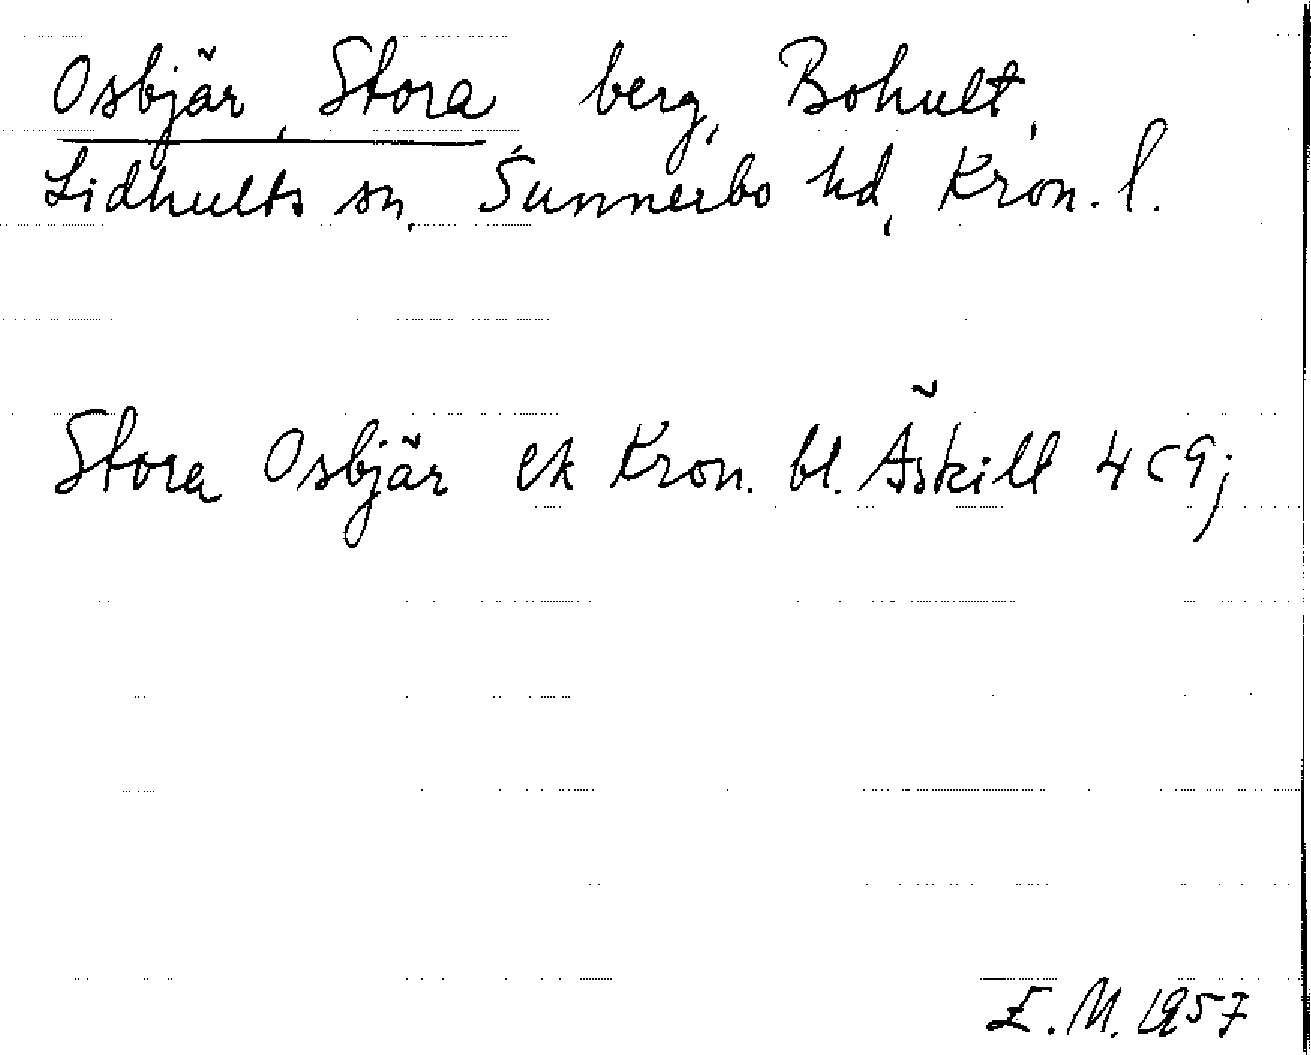 Osbjär, Stora berg, Bohult,
Lidhults sn, Sunnerbo hd, Kron. l.
Stora Osbjär ek Kron. bl. Äskill 4 c 9 j
E. M. 1957